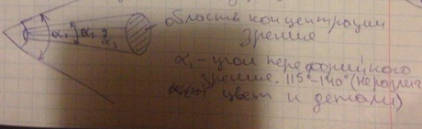 α₁ α₂ α₃
область концентрации
зрения
α₁ - угол периферийного
зрения. 115°-140° (неразлич
цвет и детали)